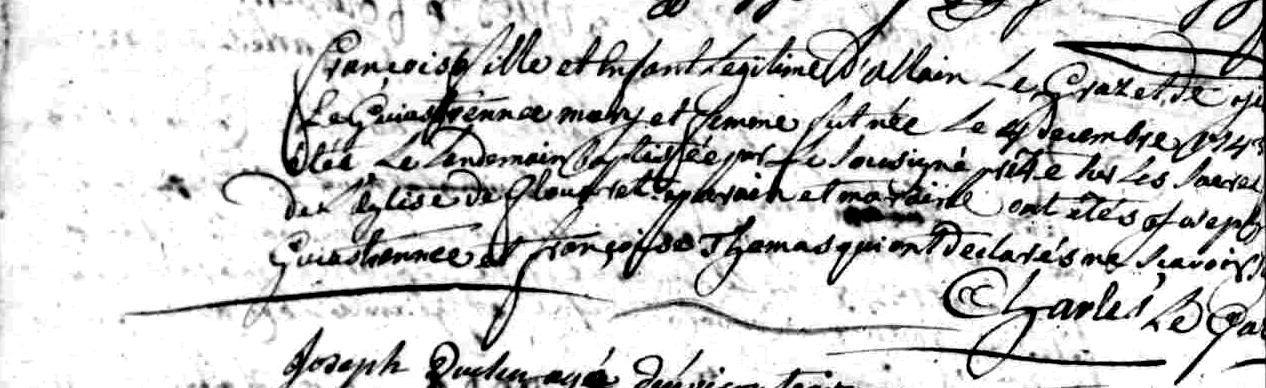 françoise fille et Enfant Legitime d'allain Le Graz et de
Le Guiastrennec mary et femme fut née Le 4 decembre 1743
étée Le Lendemain Baptisée par Le Sousigné prêtre sur Les
de L'église de parain et maraine ont étés joseph
Guiastrennec et françoise Thomas qui ont declarés ne scavoir
Charles Le
Joseph